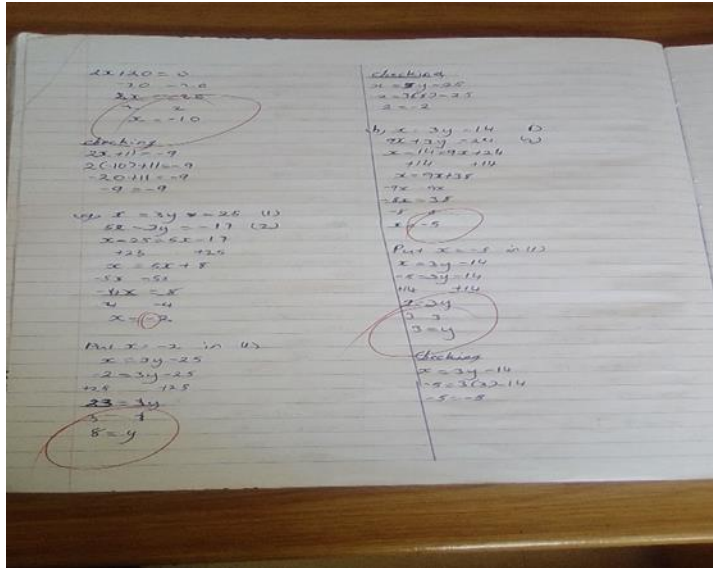 2x+20=0
-20 -20
2x = -20
2 2
x = -10
checking
2x+11=-9
2(-10)+11=-9
-20+11=-9
-9 = -9
x = 3y - 25 (1)
5x - 3y = -17 (2)
x+25=5x+17
+25 +25
x = 5x + 8
-5x -5x
-4x = 8
-4 -4
x = -2
Put x = -2 in (1)
x = 3y - 25
-2 = 3y - 25
+25 +25
23 = 3y
8 = y
checking
x = 3y - 25
-2 = -2
x = 3y - 14 (1)
9x + 3y = 24 (2)
x - 14 = 9x + 24
+14 +14
x = 9x + 38
-9x -9x
x = -5
Put x = -5 in (1)
x = 3y - 14
-5 = 3y - 14
+14 +14
9 = 3y
3 3
3 = y
checking
x = 3y - 14
-5 = 3(3) - 14
-5 = -5